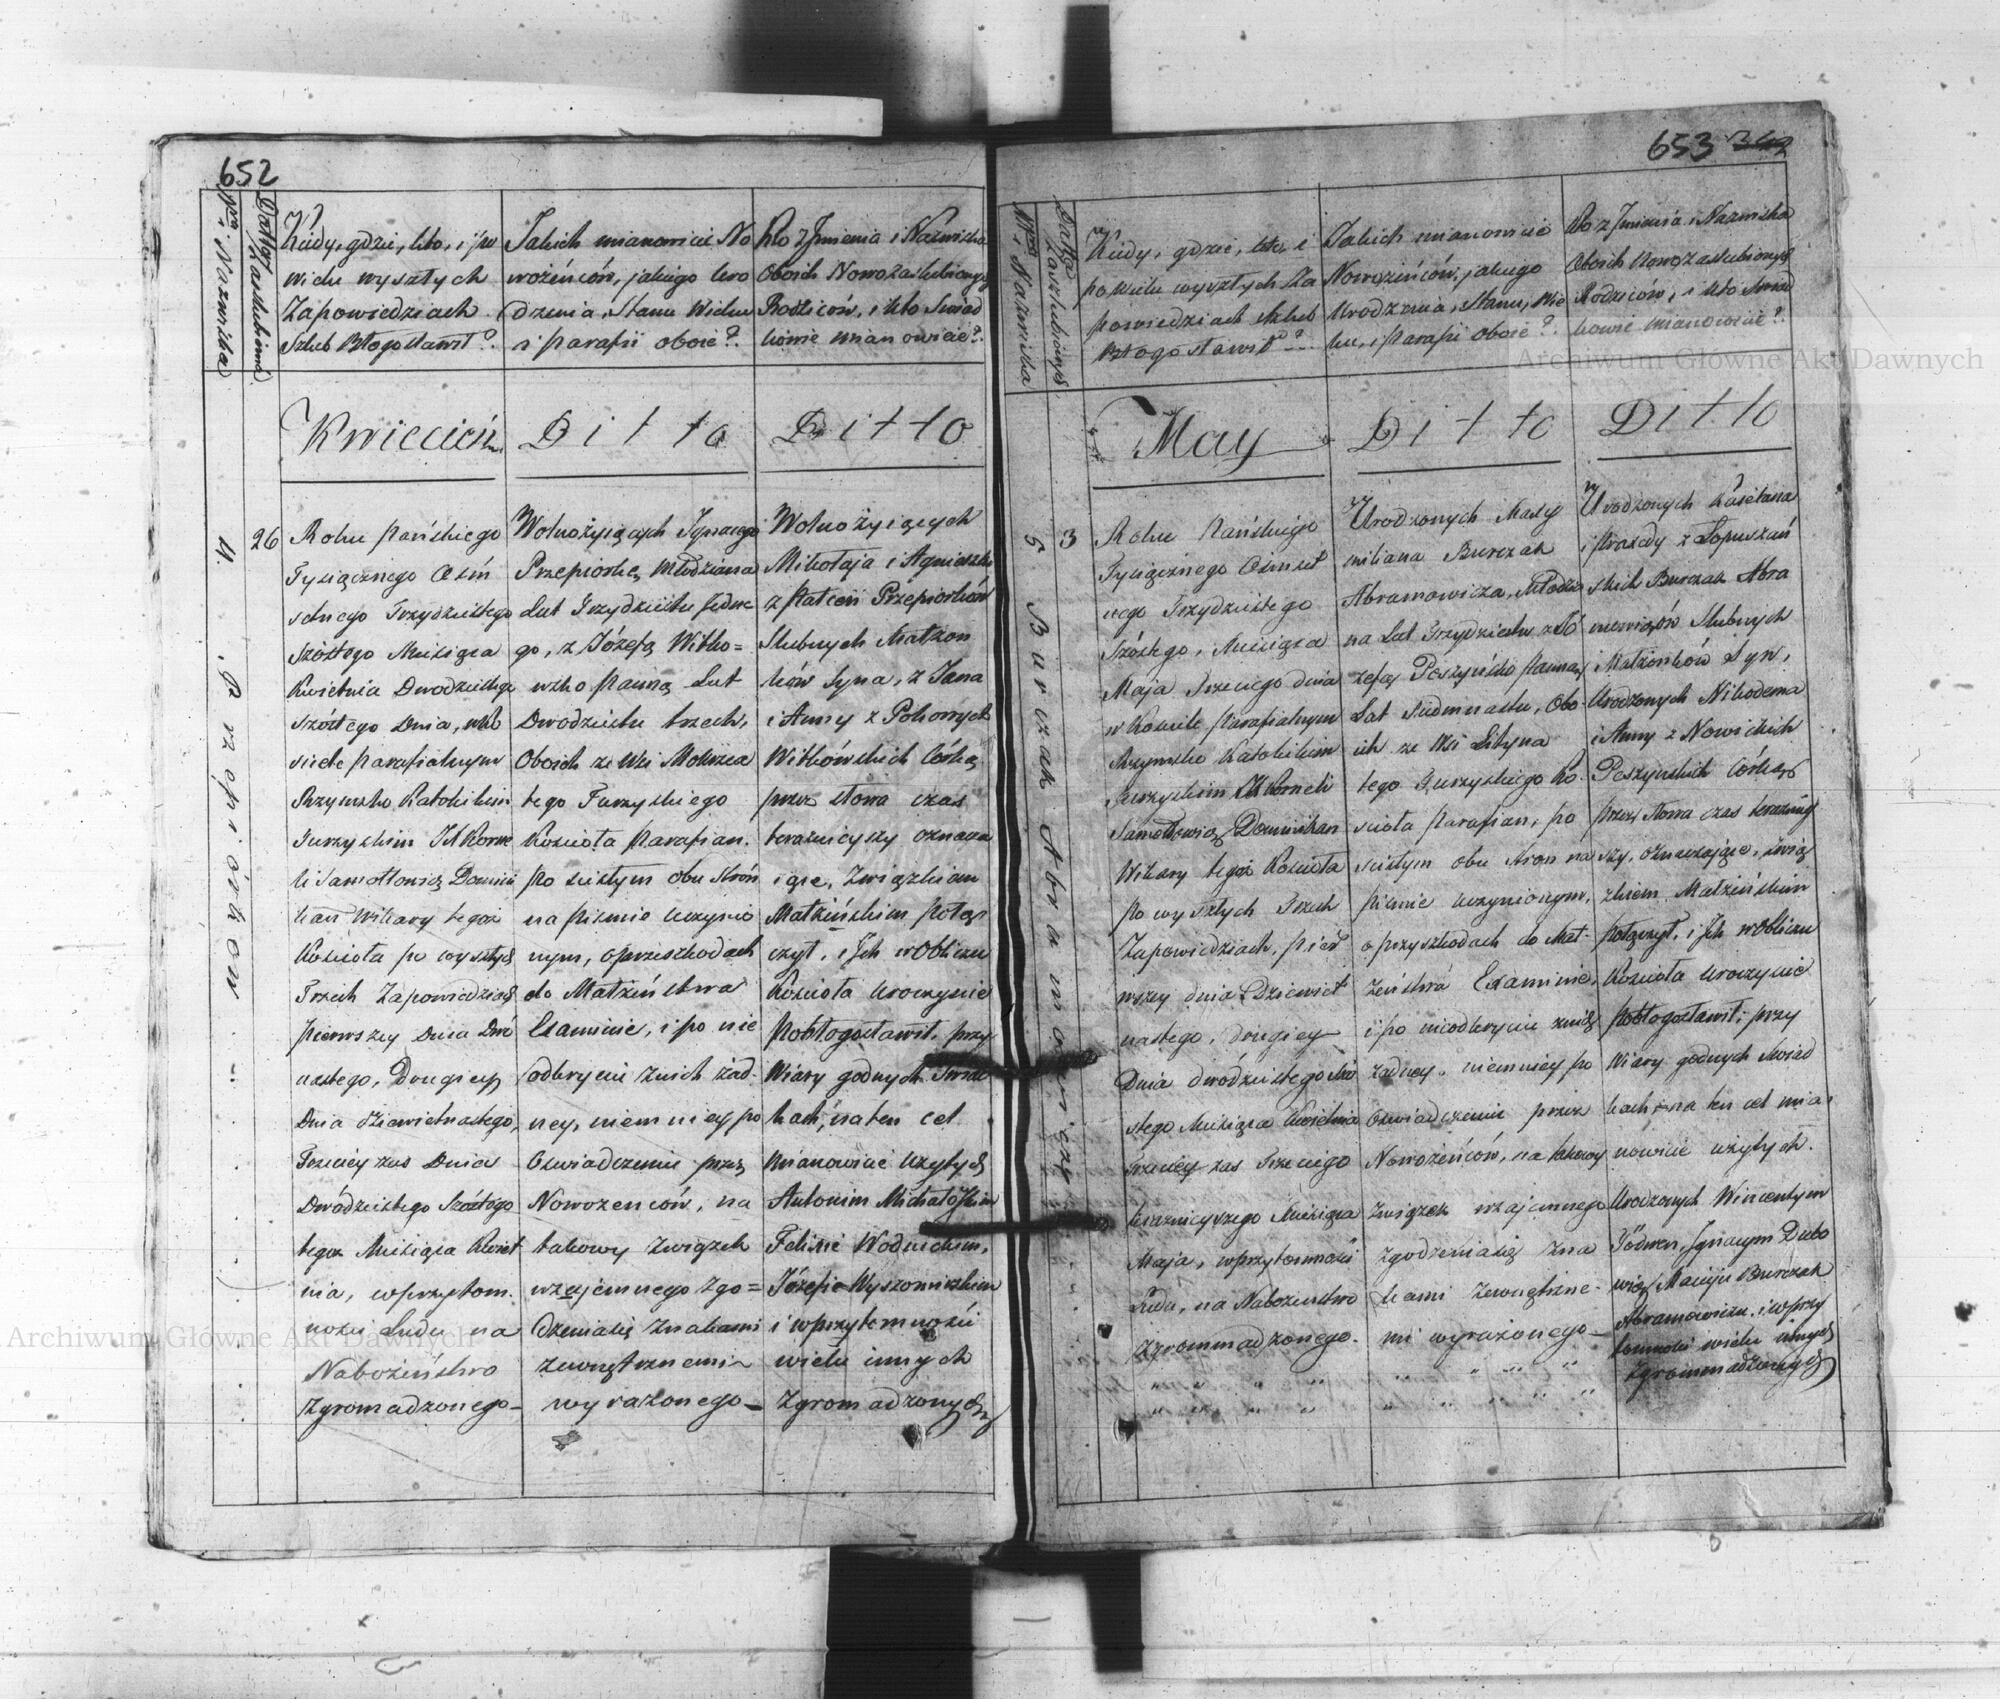 652
Nro i Nazwiska
Data Zaślubienia
Kiedy, gdzie, kto, i po
wielu wyszłych
Zapowiedziach
Szlub Błogosławił?
Jakich mianowicie No
wożeńców, jakiego Uro
dzenia, Stanu Wieku
i Parafii oboie?
Kto z Jmienia i Nazwiska
Oboich Nowozaslubionych
Rodziców, i kto Swiad
kowie mianowicie?
Kwiecień
Ditto
Ditto
4. Przepiórkow
26
Roku Pańskiego
Tysiącznego Ośm
setnego Trzydziestego
Szóstego Miesiąca
Kwietnia Dwodziestego
szóstego Dnia, w Ko
sciele Parafialnym
Rzymsko Katolickim
Turzyskim JX Korne
li Samotłowicz Domini
kan Wikary tegoż
Kościoła po wyszłych
Trzech Zapowiedziach
pierwszey Dnia Dwó
nastego, Drugiey
Dnia dziewietnastego,
Trzeciey zas Dnia
Dwódziestego Szóstego
tegoż Miesiąca Kwiet
nia, w przytom.
nosci Ludu na
Nabożeństwo
Zgromadzonego
Wolnożyiących Jgnacego
Przepiorkę Młodziana
Lat Trzydziestu jedne
go, z Józefą Witko=
wsko Panną Lat
Dwodziestu trzech,
Oboich ze Wsi Mokrca
tego Turzyskiego
Koscioła Parafian.
Po scisłym obu strón
na pismie uczynio
nym, o przeszkodach
do Małżeństwa
Examinie, i po nie
odkryciu z nich żad-
ney, niemniey po
Oswiadczeniu przez
Nowożencow, na
takowy związek
wzajemnego zgo=
dzenia się znakami
zewnętrznemi
wyrażonego
Wolnożyiących
Mikołaja i Agnieszki
z Przepiorków
Slubnych Małżon
ków Syna, z Jana
i Anny z Pohorych
Witkówskich Córką
przez słowa czas
teraznieyszy oznacza
iące, Związkiem
Małżeńskim połą
czył, i Jch w Obliczu
Kościoła Uroczyscie
Pobłogosławił, przy
Wiary godnych Swiad
kach, na ten cel
mianowicie użytych
Antonim Michałoskim
Felixie Wodnickim,
Józefie Wyszomirskim
i w przytomnosci
wielu innych
Zgromadzonych
653 342
Nro i Nazwiska
Data Zaszlubionych
Kiedy, gdzie, kto, i
po wielu wyszłych Za
powiedziach Szlub
Błogosławił?
Jakich mianowicie
Nowożeńców, jakiego
Urodzenia, Stanu, Wie
ku, i Parafii oboie?
Kto z Jmienia i Nazwiska
Oboich Nowozaslubionych
Rodziców, i kto Swiad
kowie mianowicie?
May
Ditto
Ditto
5 Burczak Abramowicz
3
Roku Pańskiego
Tysiącznego Ośmset
nego Trzydziestego
Szóstego, Miesiąca
Maja Trzeciego dnia
w Kosciele Parafialnym
Rzymsko Katolickim
Turzyskim JX Korneli
Samotłowicz Dominikan
Wikary tegoż Kościoła
po wyszłych Trzech
Zapowiedziach, pier
wszey dnia Dziewiet
nastego, drugiey
Dnia dwódziestego szó
stego Miesiąca Kwietnia
Trzeciey zas Trzeciego
teraznieyszego Miesiąca
Maja, w przytomności
Ludu, na Nabożenstwo
Zgrommadzonego.
Urodzonych Maxy
miliana Burczak
Abramowicza, Młodzia
na Lat Trzydziestu z Jó
zefą Peszyńsko Panną
Lat Siedmnastu, Obo
ich ze Wsi Litynia
tego Turzyskiego Ko
scioła Parafian, po
scisłym obu stron na
piśmie uczynionym,
o przyszkodach do Mał-
żeństwa Examinie,
i po nieodkryciu znich
żadney, niemniey po
Oswiadczeniu przez
Nowożeńców, na takowy
Związek wzajemnego
zgodzenia się zna
kami Zewnętrzne-
mi wyrażonego
Urodzonych Kaietana
i Praxedy z Łopuszań
skich Burczak Abra
mowiczów Slubnych
Małżonków Syn,
Urodzonych Nikodema
i Anny z Nowickich
Peszynskich Córką
przez słowa czas teraźniey
szy, oznaczaiące, zwią
zkiem Małżeńskim
Połączył, i Jch w Obliczu
Kościoła Uroczyscie
pobłogosławił, przy
Wiary godnych Swiad
kach, na ten cel mia
nowicie użytych.
Urodzonych Wincentym
Jgnacym Dubo
wicz, Macieju Burczak
Abramowiczu, i w przy
tomności wielu innych
Zgrommadzonych
Archiwum Główne Akt Dawnych
Archiwum Główne Akt Dawnych